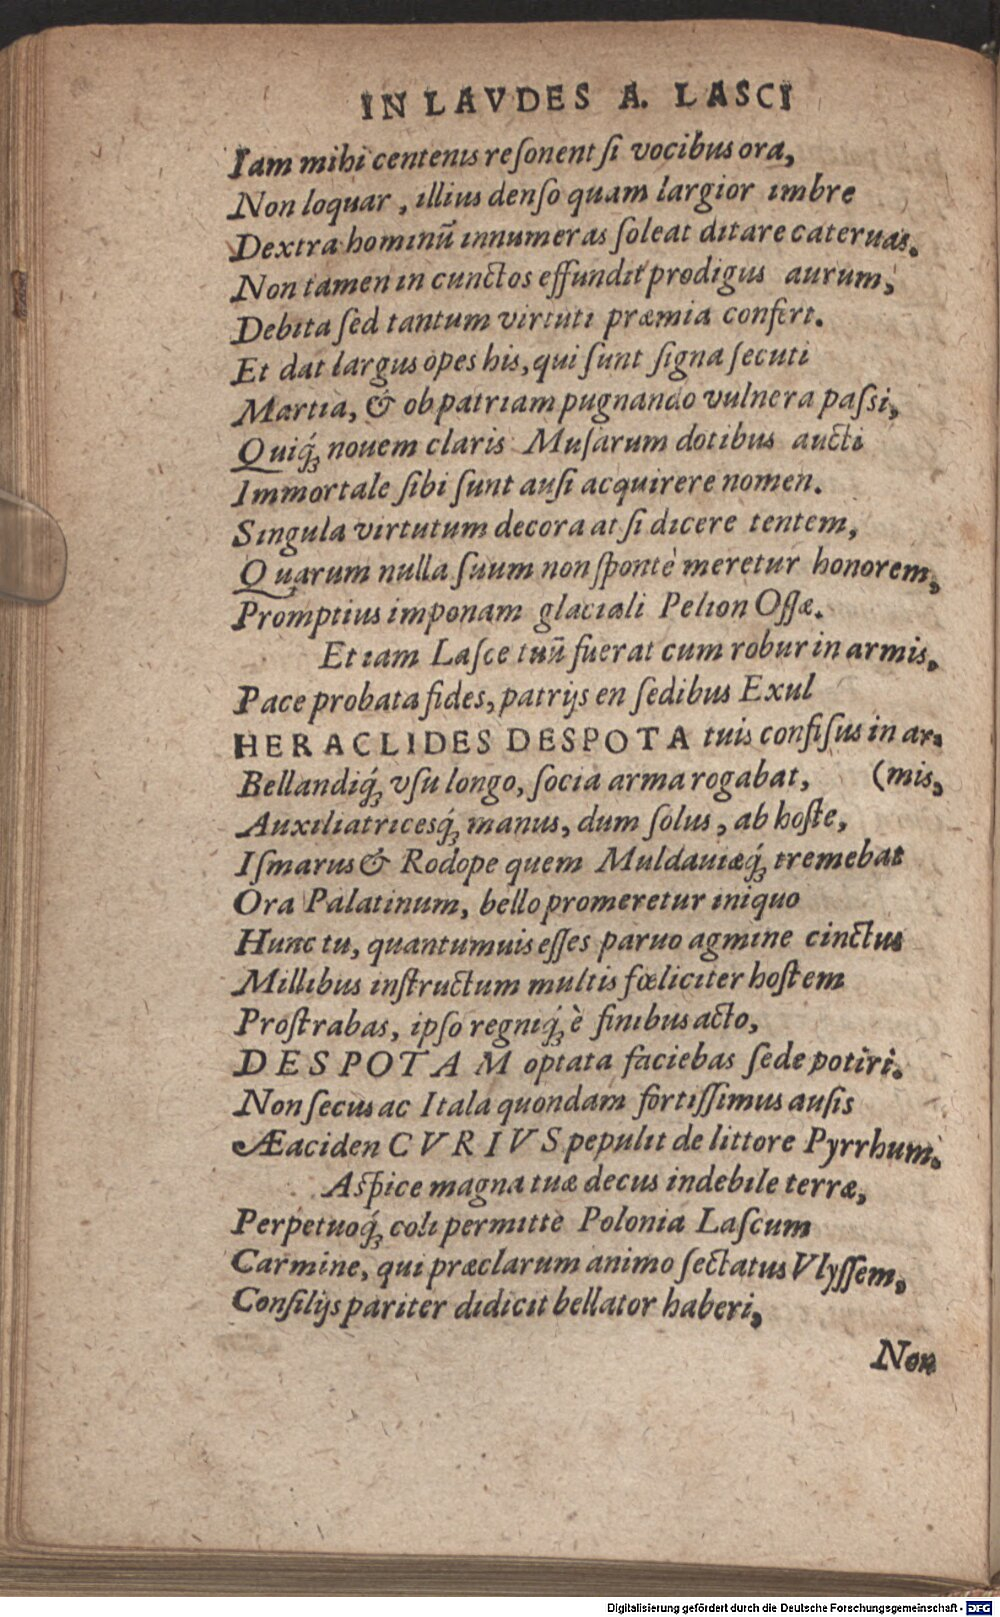 IN LAVDES A. LASCI
Iam mihi centenis reſonent ſi vocibus ora,
Non loquar, illius denſo quam largior imbre
Dextra hominū innumeras ſoleat ditare cateruas.
Non tamen in cunctos effundit prodigus aurum,
Debita ſed tantum virtuti præmia confert.
Et dat largus opes his, qui ſunt ſigna ſecuti
Martia, & ob patriam pugnando vulnera paſsi,
Quiq́ꝫ nouem claris Muſarum dotibus aucti
Immortale ſibi ſunt auſi acquirere nomen.
Singula virtutum decora at ſi dicere tentem,
Quarum nulla ſuum non ſpontè meretur honorem,
Promptius imponam glaciali Pelion Oſſæ.
Etiam Laſce tuū fuerat cum robur in armis.
Pace probata fides, patrijs en ſedibus Exul
HERACLIDES DESPOTA tuis confiſus in ar-
Bellandiq́ꝫ vſu longo, ſocia arma rogabat, (mis,
Auxiliatricesq́ꝫ manus, dum ſolus, ab hoſte,
Iſmarus & Rodope quem Muldauiæq́ꝫ tremebat
Ora Palatinum, bello promeretur iniquo
Hunc tu, quantumuis eſſes paruo agmine cinctus
Millibus inſtructum multis fœliciter hoſtem
Proſtrabas, ipſo regniq́ꝫ è finibus acto,
DESPOTAM optata faciebas ſede potiri.
Non ſecus ac Itala quondam fortiſſimus auſis
Æaciden CVRIVS pepulit de littore Pyrrhum.
Aſpice magna tuæ decus indebile terræ,
Perpetuoq́ꝫ coli permitte Polonia Laſcum
Carmine, qui præclarum animo ſectatus Vlyſſem,
Conſilijs pariter didicit bellator haberi,
Non
Digitalisierung gefördert durch die Deutsche Forschungsgemeinschaft - DFG